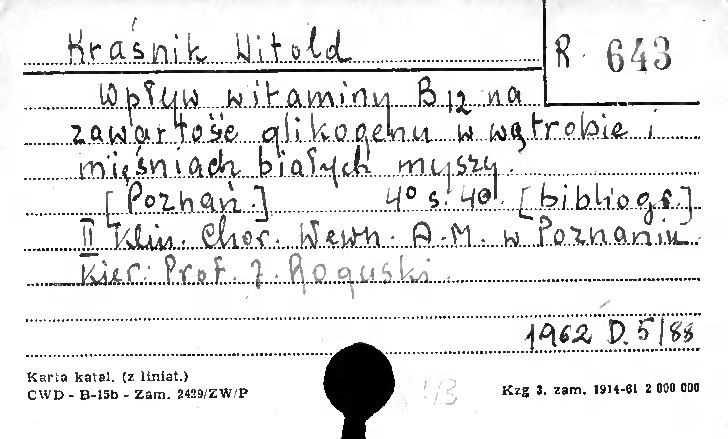 Kraśnik Witold
R. 643
Wpływ witaminy B12 na
zawartość glikogenu w wątrobie i
mięśniach białych myszy.
[Poznań.] 4° s. 40. [bibliogr.]
II Klin. Chor. Wewn. A.M. w Poznaniu
Kier. Prof. J. Roguski.
1962 D. 5/88
Karta katal. (z liniat.)
CWD - B-15b - Zam. 2429/ZW/P
Kzg 3. zam. 1914-61 2 000 000